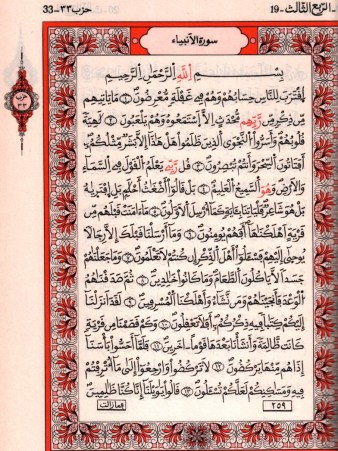 الربع الثالث - 19
حزب ٣٣ - 33
سورة الأنبياء
حزب
٣٣
بِسْمِ اللَّهِ الرَّحْمَٰنِ الرَّحِيمِ
اقْتَرَبَ لِلنَّاسِ حِسَابُهُمْ وَهُمْ فِي غَفْلَةٍ مُعْرِضُونَ ۝١ مَا يَأْتِيهِمْ
مِنْ ذِكْرٍ مِنْ رَبِّهِمْ مُحْدَثٍ إِلَّا اسْتَمَعُوهُ وَهُمْ يَلْعَبُونَ ۝٢ لَاهِيَةً
قُلُوبُهُمْ وَأَسَرُّوا النَّجْوَى الَّذِينَ ظَلَمُوا هَلْ هَٰذَا إِلَّا بَشَرٌ مِثْلُكُمْ
أَفَتَأْتُونَ السِّحْرَ وَأَنْتُمْ تُبْصِرُونَ ۝٣ قُلْ رَبِّي يَعْلَمُ الْقَوْلَ فِي السَّمَاءِ
وَالْأَرْضِ وَهُوَ السَّمِيعُ الْعَلِيمُ ۝٤ بَلْ قَالُوا أَضْغَاثُ أَحْلَامٍ بَلِ افْتَرَاهُ
بَلْ هُوَ شَاعِرٌ فَلْيَأْتِنَا بِآيَةٍ كَمَا أُرْسِلَ الْأَوَّلُونَ ۝٥ مَا آمَنَتْ قَبْلَهُمْ مِنْ
قَرْيَةٍ أَهْلَكْنَاهَا أَفَهُمْ يُؤْمِنُونَ ۝٦ وَمَا أَرْسَلْنَا قَبْلَكَ إِلَّا رِجَالًا
يُوحَى إِلَيْهِمْ فَسْئَلُوا أَهْلَ الذِّكْرِ إِنْ كُنْتُمْ لَا تَعْلَمُونَ ۝٧ وَمَا جَعَلْنَاهُمْ
جَسَدًا لَا يَأْكُلُونَ الطَّعَامَ وَمَا كَانُوا خَالِدِينَ ۝٨ ثُمَّ صَدَقْنَاهُمُ
الْوَعْدَ فَأَنْجَيْنَاهُمْ وَمَنْ نَشَاءُ وَأَهْلَكْنَا الْمُسْرِفِينَ ۝٩ لَقَدْ أَنْزَلْنَا
إِلَيْكُمْ كِتَابًا فِيهِ ذِكْرُكُمْ أَفَلَا تَعْقِلُونَ ۝١٠ وَكَمْ قَصَمْنَا مِنْ قَرْيَةٍ
كَانَتْ ظَالِمَةً وَأَنْشَأْنَا بَعْدَهَا قَوْمًا آخَرِينَ ۝١١ فَلَمَّا أَحَسُّوا بَأْسَنَا
إِذَا هُمْ مِنْهَا يَرْكُضُونَ ۝١٢ لَا تَرْكُضُوا وَارْجِعُوا إِلَى مَا أُتْرِفْتُمْ
فِيهِ وَمَسَاكِنِكُمْ لَعَلَّكُمْ تُسْئَلُونَ ۝١٣ قَالُوا يَا وَيْلَنَا إِنَّا كُنَّا ظَالِمِينَ ۝١٤
٢٥٩
فما زالت